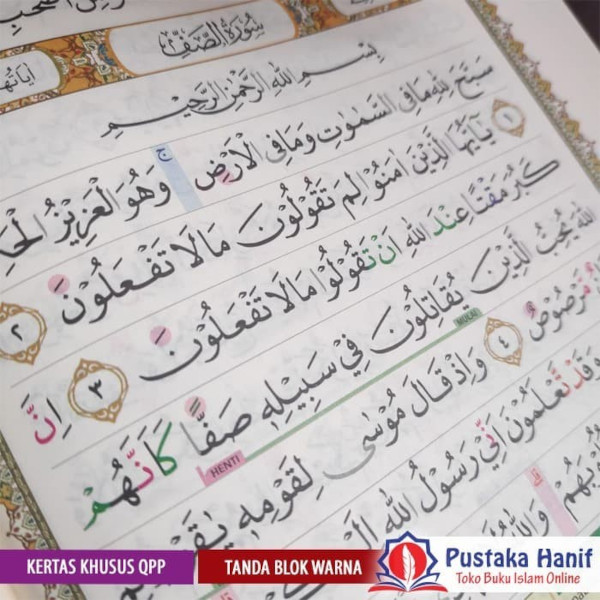 سُوْرَةُ الصَّفِّ
بِسْمِ اللّٰهِ الرَّحْمٰنِ الرَّحِيْمِ
سَبَّحَ لِلّٰهِ مَا فِى السَّمٰوٰتِ وَمَا فِى الْاَرْضِۚ وَهُوَ الْعَزِيْزُ
١ يٰٓاَيُّهَا الَّذِيْنَ اٰمَنُوْا لِمَ تَقُوْلُوْنَ مَا لَا تَفْعَلُوْنَ ٢
كَبُرَ مَقْتًا عِنْدَ اللّٰهِ اَنْ تَقُوْلُوْا مَا لَا تَفْعَلُوْنَ ٣ اِنَّ
اللّٰهَ يُحِبُّ الَّذِيْنَ يُقَاتِلُوْنَ فِيْ سَبِيْلِهٖ صَفًّا كَاَنَّهُمْ
MULAI
HENTI
مَرْصُوْصٌ ٤ وَاِذْ قَالَ مُوْسٰى لِقَوْمِهٖ
تَعْلَمُوْنَ اَنِّيْ رَسُوْلُ اللّٰهِ
KERTAS KHUSUS QPP
TANDA BLOK WARNA
Pustaka Hanif
Toko Buku Islam Online